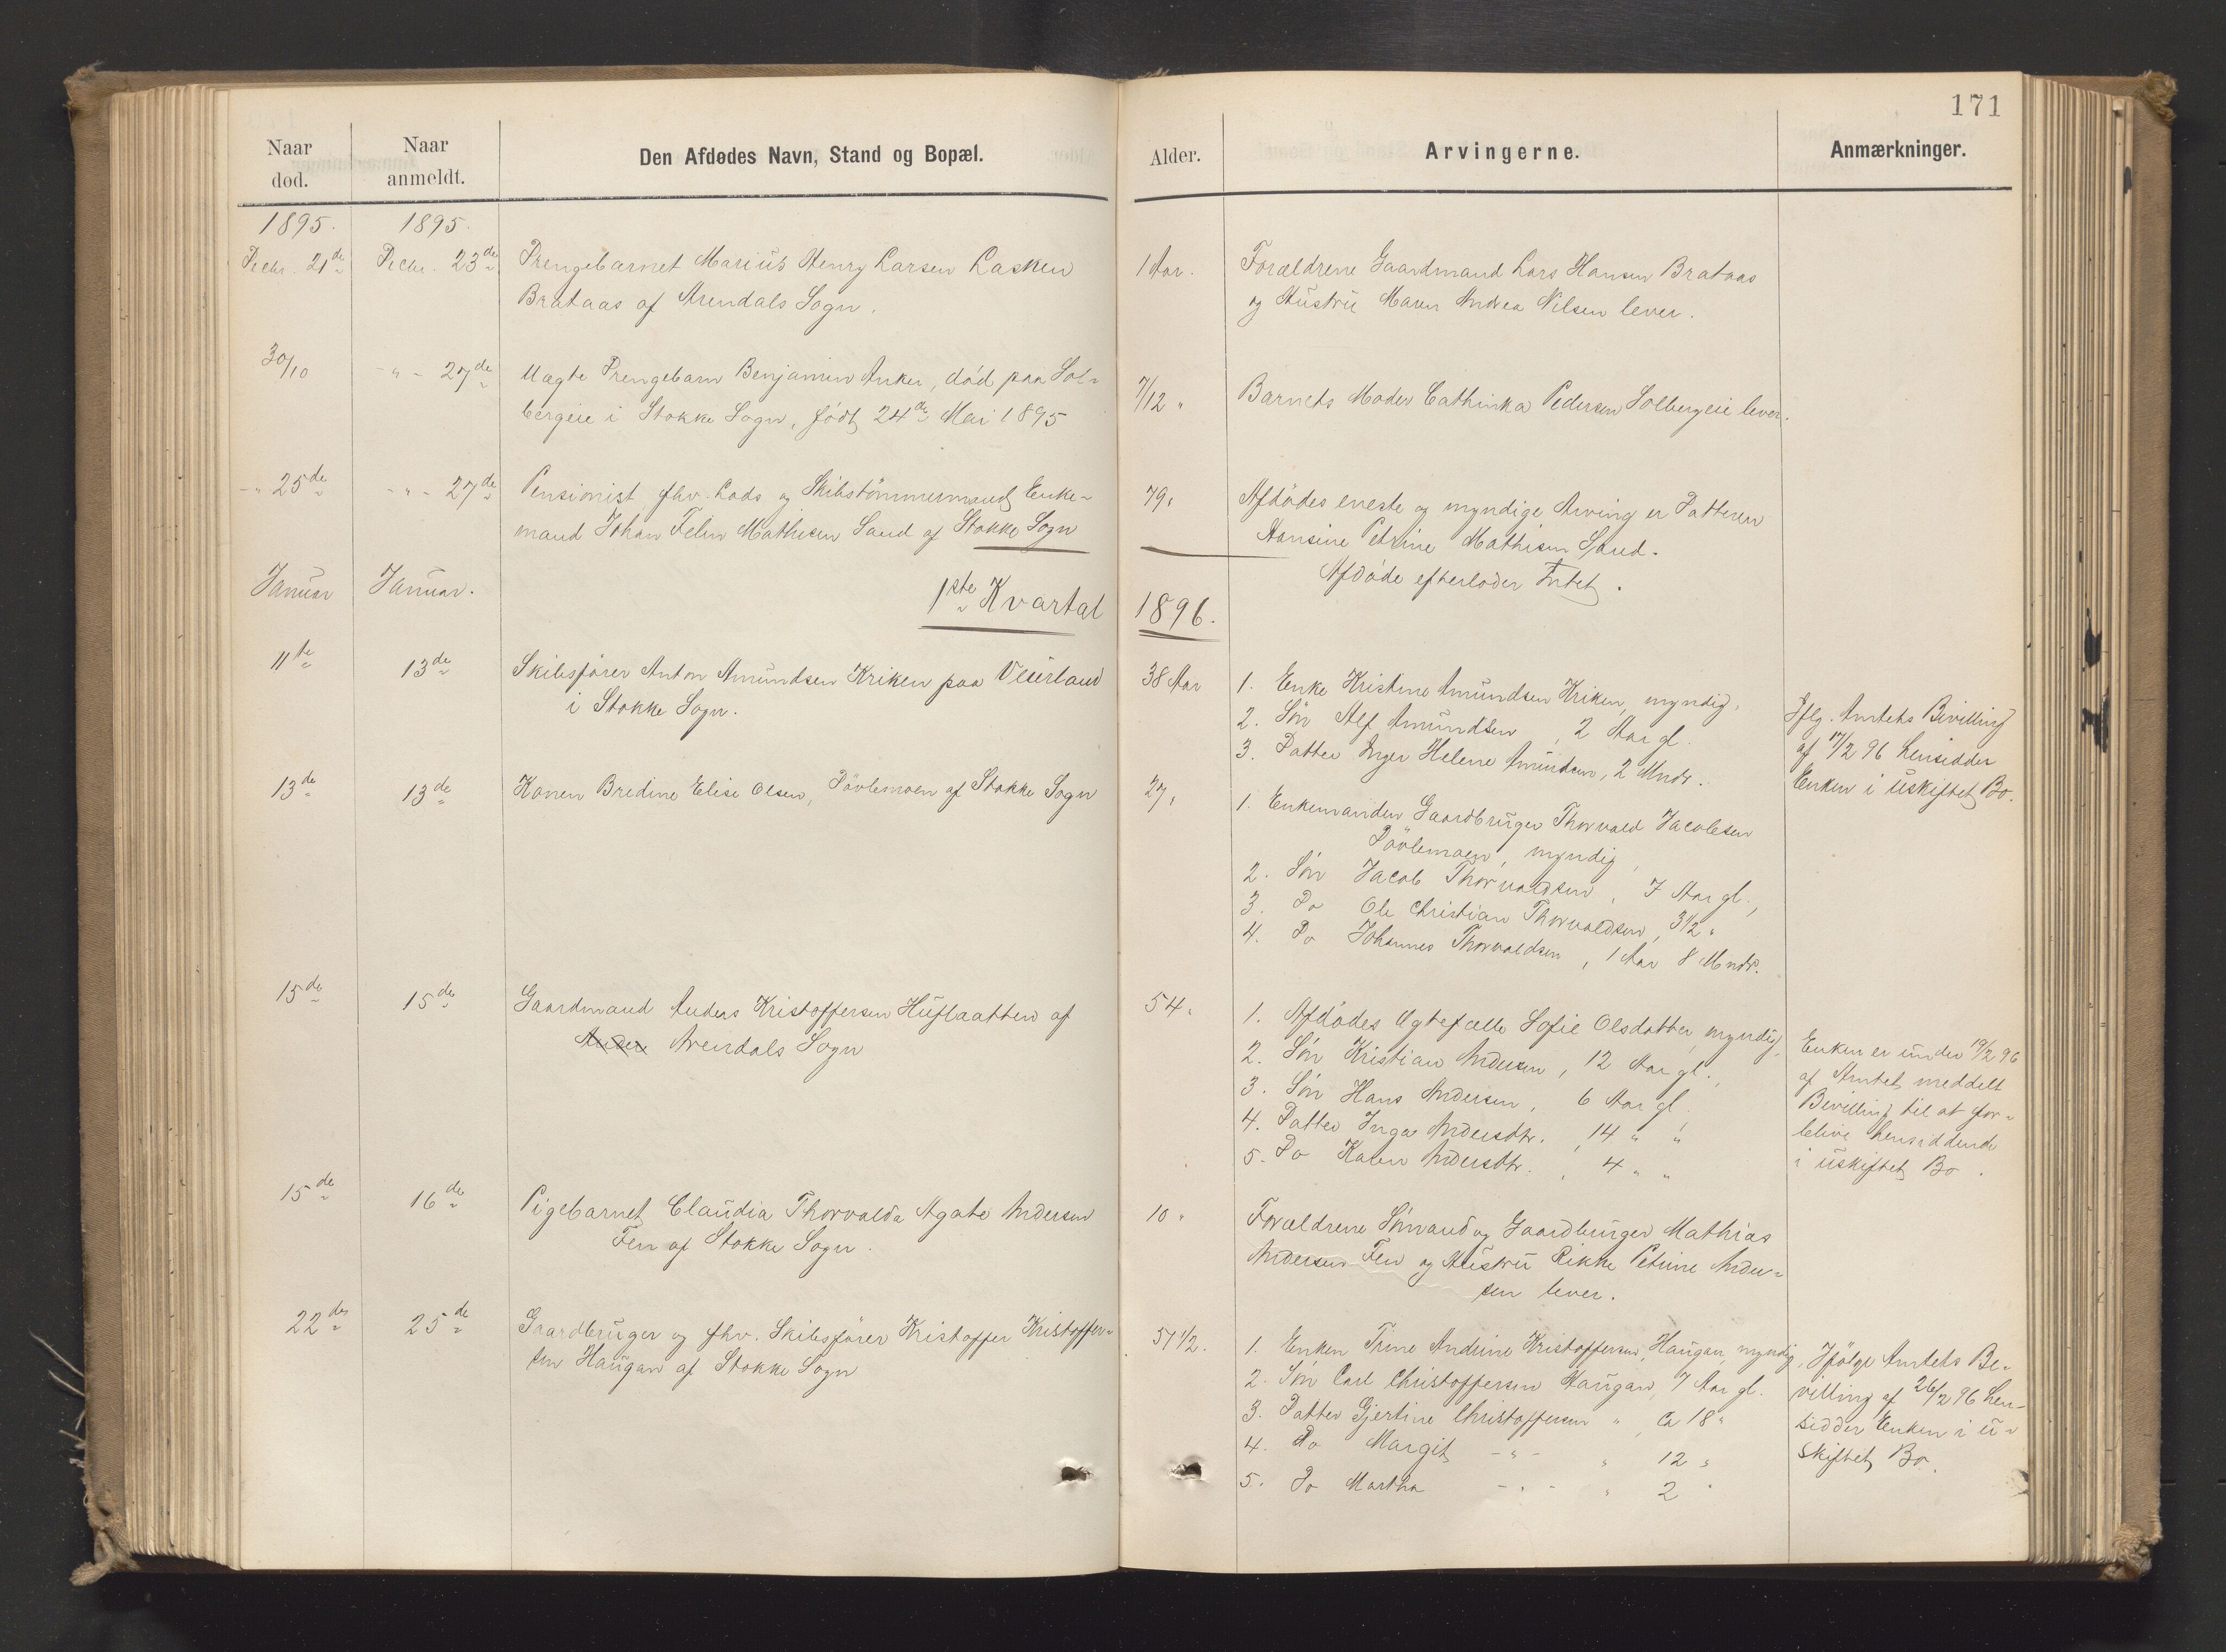 171
Naar død.
Naar anmeldt.
Den Afdødes Navn, Stand og Bopæl.
Alder.
Arvingerne.
Anmærkninger.
1895. 1895.
Decbr. 21de Decbr. 23de Drengebarnet Marius Henry Larsen Lasken
Brataas af Arendals Sogn.
1 Aar.
Forældrene Gaardmand Lars Hansen Brataas
og Hustru Maren Andrea Nilsen lever.
30/10 -"- 27de Uægte Drengebarn Benjamin Anker, død paa Sol-
bergeie i Stokke Sogn, født 24de Mai 1895
7/12 "
Barnets Moder Cathinka Pedersen Solbergeie lever.
-" 25de -"- 27de Pensionist fhv. Lods og Skibstømmermand Enke-
mand Johan Felin Mathisen Sand af Stokke Sogn
79 "
Afdødes eneste og myndige Arving er Datteren
Hansine Petrine Mathisen Sand.
Afdøde efterlader Intet.
Januar Januar.
1ste Kvartal 1896.
11te 13de Skibsfører Anton Amundsen Kriken paa Veierland
i Stokke Sogn.
38 Aar
1. Enke Kristine Amundsen Kriken, myndig,
2. Søn Alf Amundsen, 2 Aar gl.
3. Datter Inger Helene Amundsen, 2 Mndr.
Iflg. Amtets Bevilling
af 17/2 96 hensidder
Enken i uskiftet Bo.
13de 13de Konen Bredine Elise Olsen, Døvlemoen af Stokke Sogn
27 "
1. Enkemanden Gaardbruger Thorvald Jacobsen
Døvlemoen, myndig,
2. Søn Jacob Thorvaldsen, 7 Aar gl.,
3. Do Ole Christian Thorvaldsen, 3 1/2 "
4. Do Johannes Thorvaldsen, 1 Aar 8 Mndr.
15de 15de Gaardmand Anders Kristoffersen Huflaatten af
Arendals Sogn
54 "
1. Afdødes Ægtefælle Sofie Olsdatter, myndig,
2. Søn Kristian Andersen, 12 Aar gl.,
3. Søn Hans Andersen, 6 Aar gl.
4. Datter Inga Andersdtr., 14 " "
5. Do Karen Andersdtr., 4 " "
Enken er under 19/2 96
af Amtet meddelt
Bevilling til at for-
blive hensiddende
i uskiftet Bo.
15de 16de Pigebarnet Claudia Thorvalda Agate Andersen
Fen af Stokke Sogn.
10 "
Forældrene Sømand og Gaardbruger Mathias
Andersen Fen og Hustru Rikke Petrine Ander-
sen lever.
22de 25de Gaardbruger og fhv. Skibsfører Kristoffer Kristoffer-
sen Haugan af Stokke Sogn
51 1/2.
1. Enken Trine Andrine Kristoffersen, Haugan, myndig,
2. Søn Carl Christoffersen Haugan, 7 Aar gl.
3. Datter Gjertine Christoffersen " , ca 18 "
4. Do Margit -"- " 12 "
5. Do Martha -"- " 2 "
Ifølge Amtets Be-
villing af 26/2 96 hen-
sidder Enken i u-
skiftet Bo.